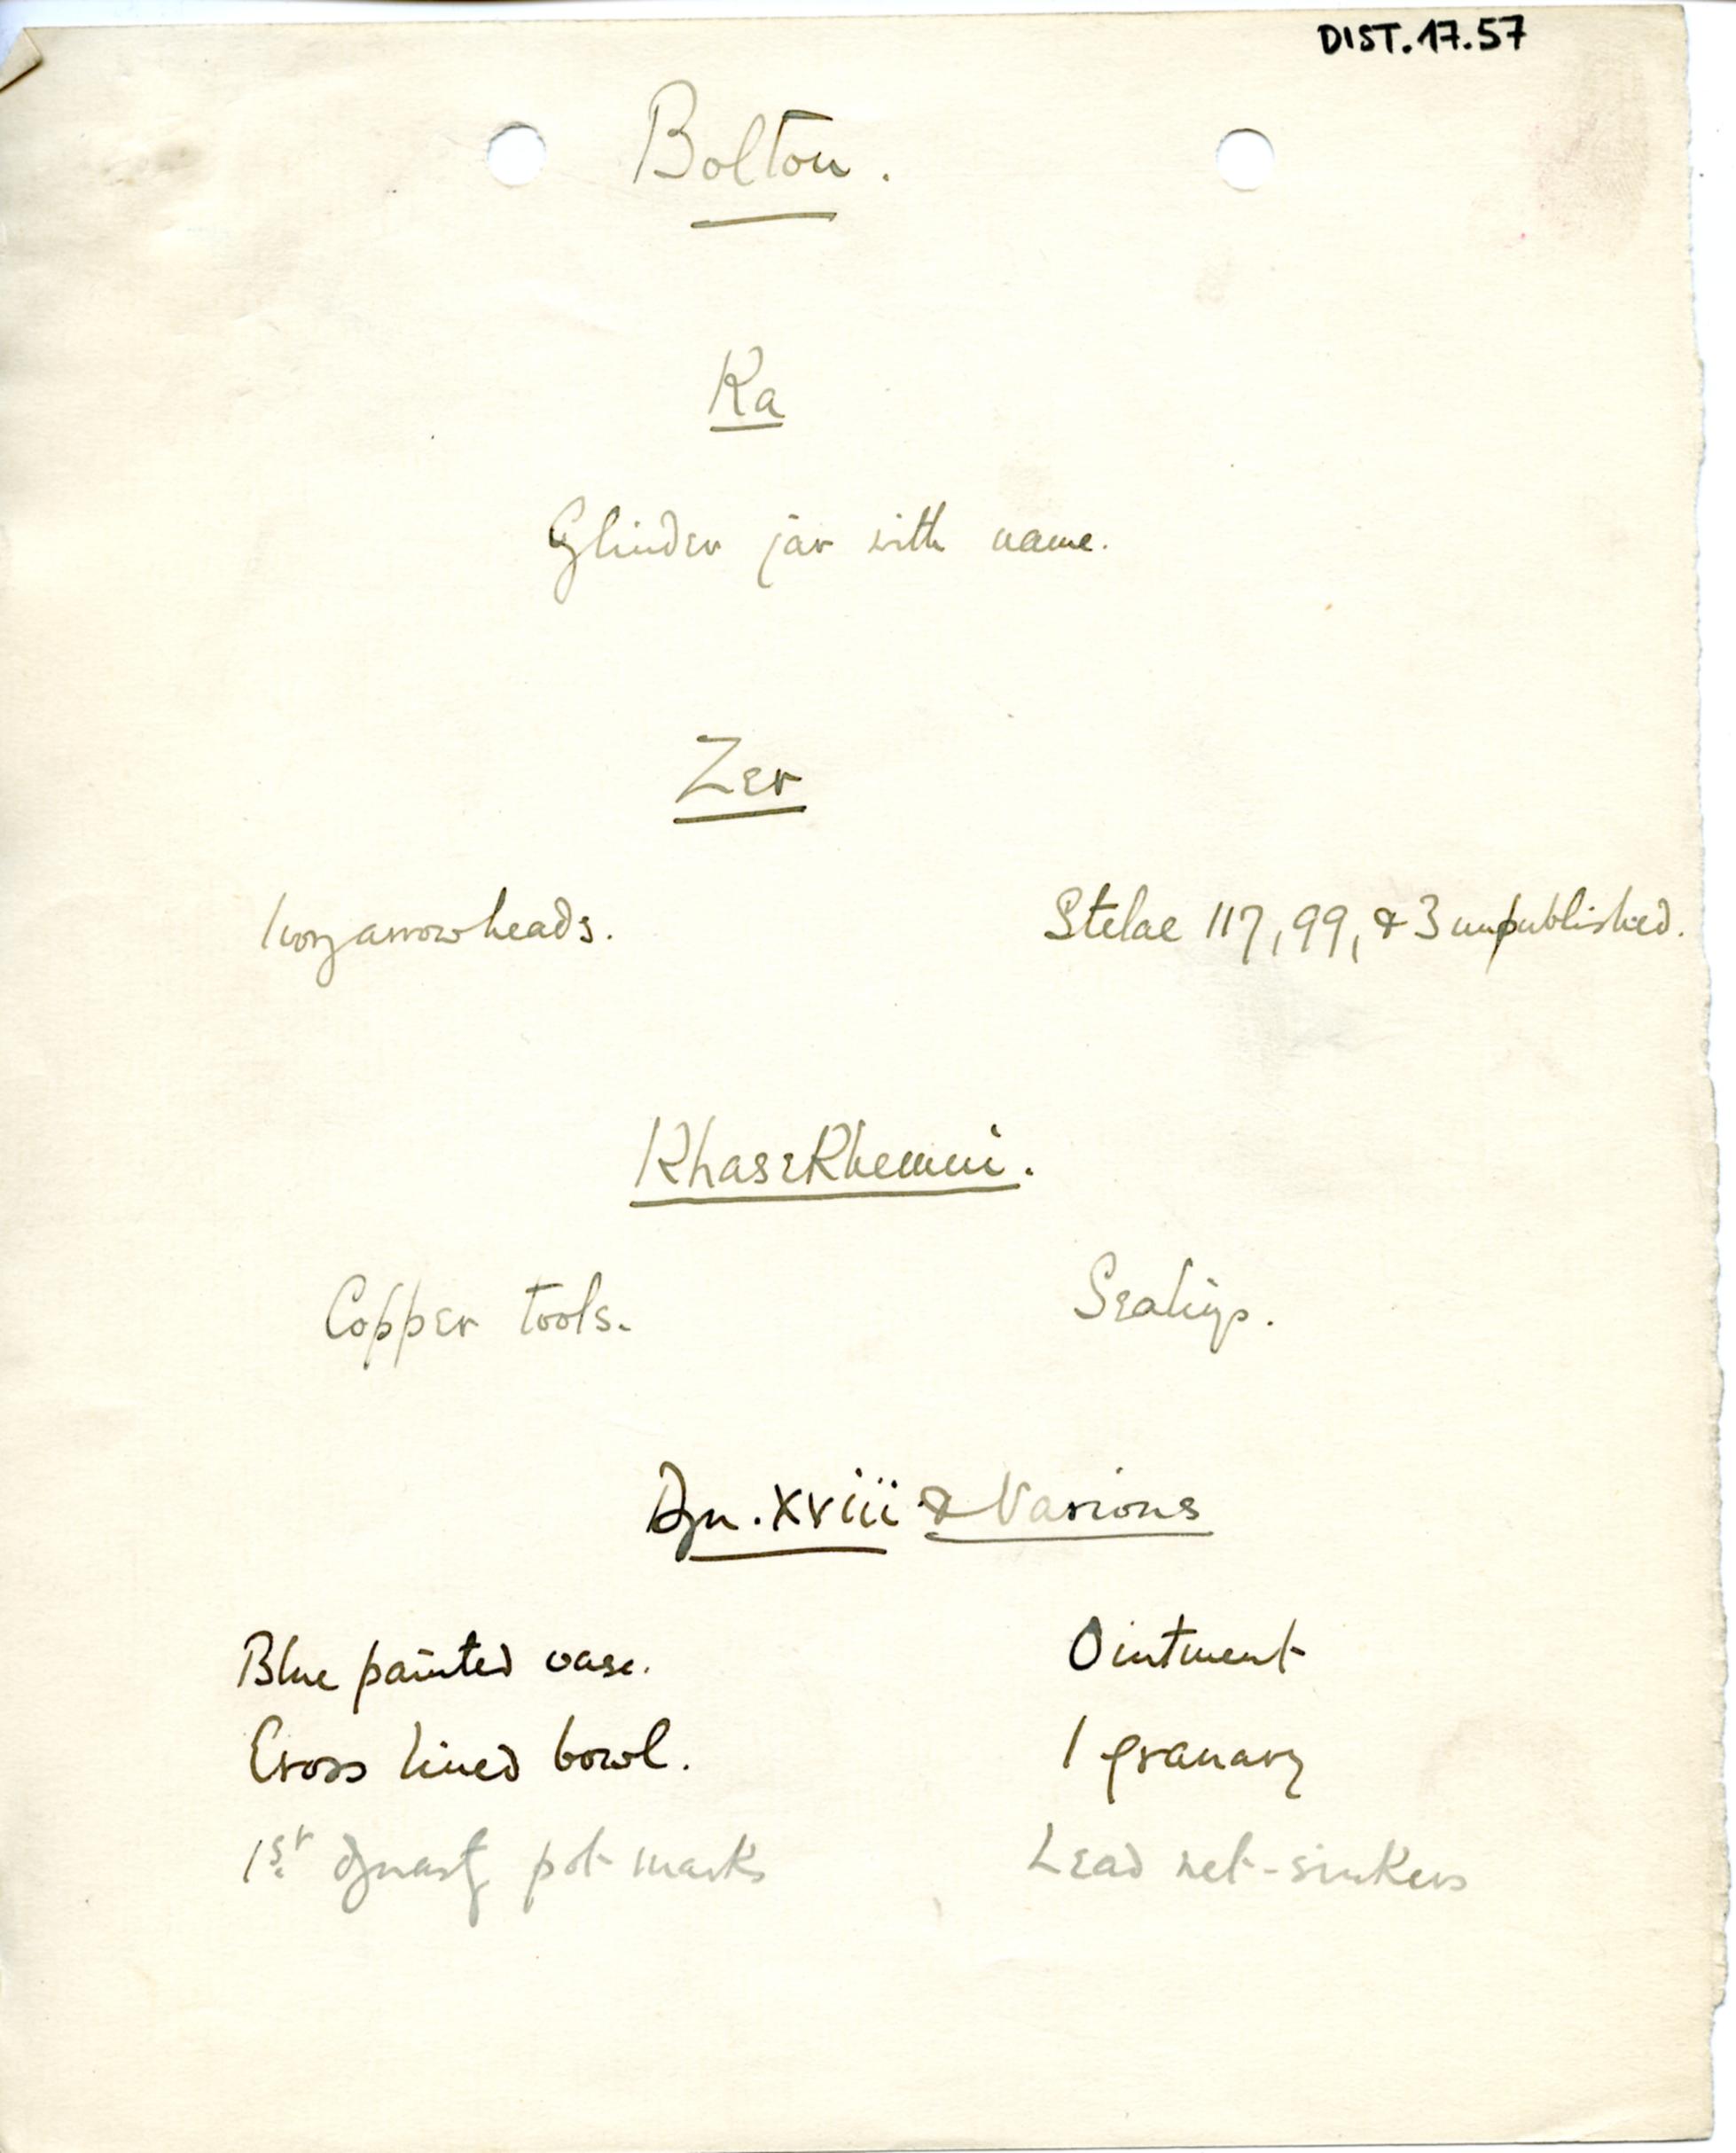 DIST. 17.57
Bolton.
Ka
Cylinder jar with name.
Zer
Ivory arrowheads. Stelae 117, 99, & 3 unpublished.
Khasekhemui.
Copper tools. Sealings.
Dyn. XVIII & Various
Blue painted vase. Ointment
Cross lined bowl. 1 granary
1st dynasty pot marks Lead net-sinkers